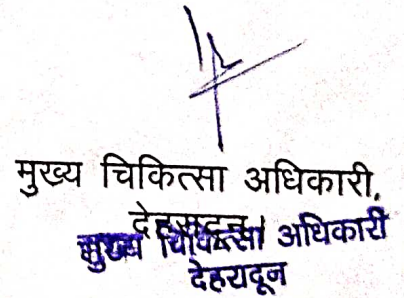 मुख्य चिकित्सा अधिकारी,
देहरादून।
मुख्य चिकित्सा अधिकारी
देहरादून